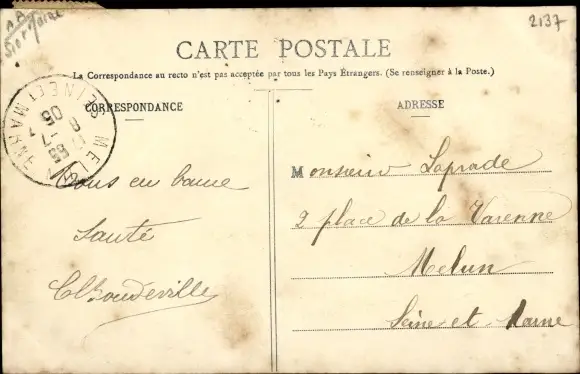 2137
CARTE POSTALE
La Correspondance au recto n'est pas acceptée par tous les Pays Étrangers. (Se renseigner à la Poste.)
CORRESPONDANCE
Tous en bonne
Santé
ADRESSE
Monsieur Laprade
2 place de la Varenne
Melun
Seine et Marne